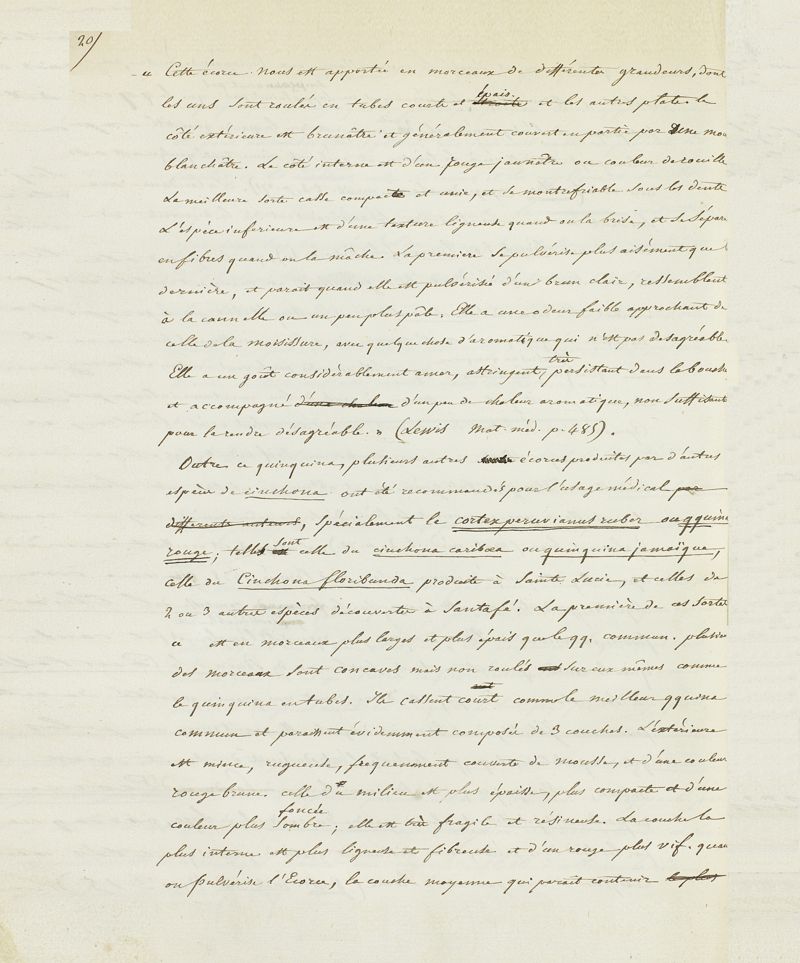 20/
" Cette écorce nous est apportée en morceaux de différentes grandeurs, dont
les uns sont roulés en tubes courts et épais. et les autres plats. le
côté extérieure est brunâtre et généralement couvert en partie par une mou
blanchâtre. Le côté interne est d'un rouge jaunâtre ou couleur de rouille
La meilleure sorte casse compacte et unie, et se montre friable sous les dents
L'espèce inférieure est d'une texture ligneuse quand on la brise, et se sépare
en fibres quand on la mâche. La première se pulvérise plus aisément que
dernière, et parait quand elle est pulvérisé d'un brun clair, ressemblant
à la cannelle ou un peu plus pâle. Elle a une odeur faible approchant de
celle de la moisissure, avec quelque chose d'aromatique qui n'est pas desagréable.
Elle a un goût considérablement amer, astringent, très persistant dans la bouche
et accompagné d'une chaleur d'un peu de chaleur aromatique, non suffisant
pour la rendre désagréable. » (Lewis Mat. méd. p. 485).
Outre ce quinquina, plusieurs autres écorces produites par d'autres
espèces de cinchona ont été recommandés pour l'usage médical par
différents auteurs, spécialement le cortex peruvianus ruber ou qquina
rouge; telles sont celle du cinchona caribæa ou quinquina jamaïque,
celle du Cinchona floribunda produite à Sainte Lucie, et celles de
2 ou 3 autres espèces découvertes à Santafé. La première de ces sortes
est en morceaux plus larges et plus épais que le qq. commun. plusieu
des morceaux sont concaves mais non roulés sur eux mêmes comme
le quinquina en tubes. Ils cassent court comme le meilleur qquina
commun et paraissent évidemment composés de 3 couches. L'extérieure
est mince, rugueuse, fréquemment couverte de mousse, et d'une couleur
rouge brune. celle du milieu est plus épaisse, plus compacte et d'une
couleur plus foncée sombre; elle est très fragile et résineuse. La couche la
plus interne est plus ligneuse et fibreuse et d'un rouge plus vif. quan
on pulvérise l'Ecorce, la couche moyenne qui parait contenir le plus